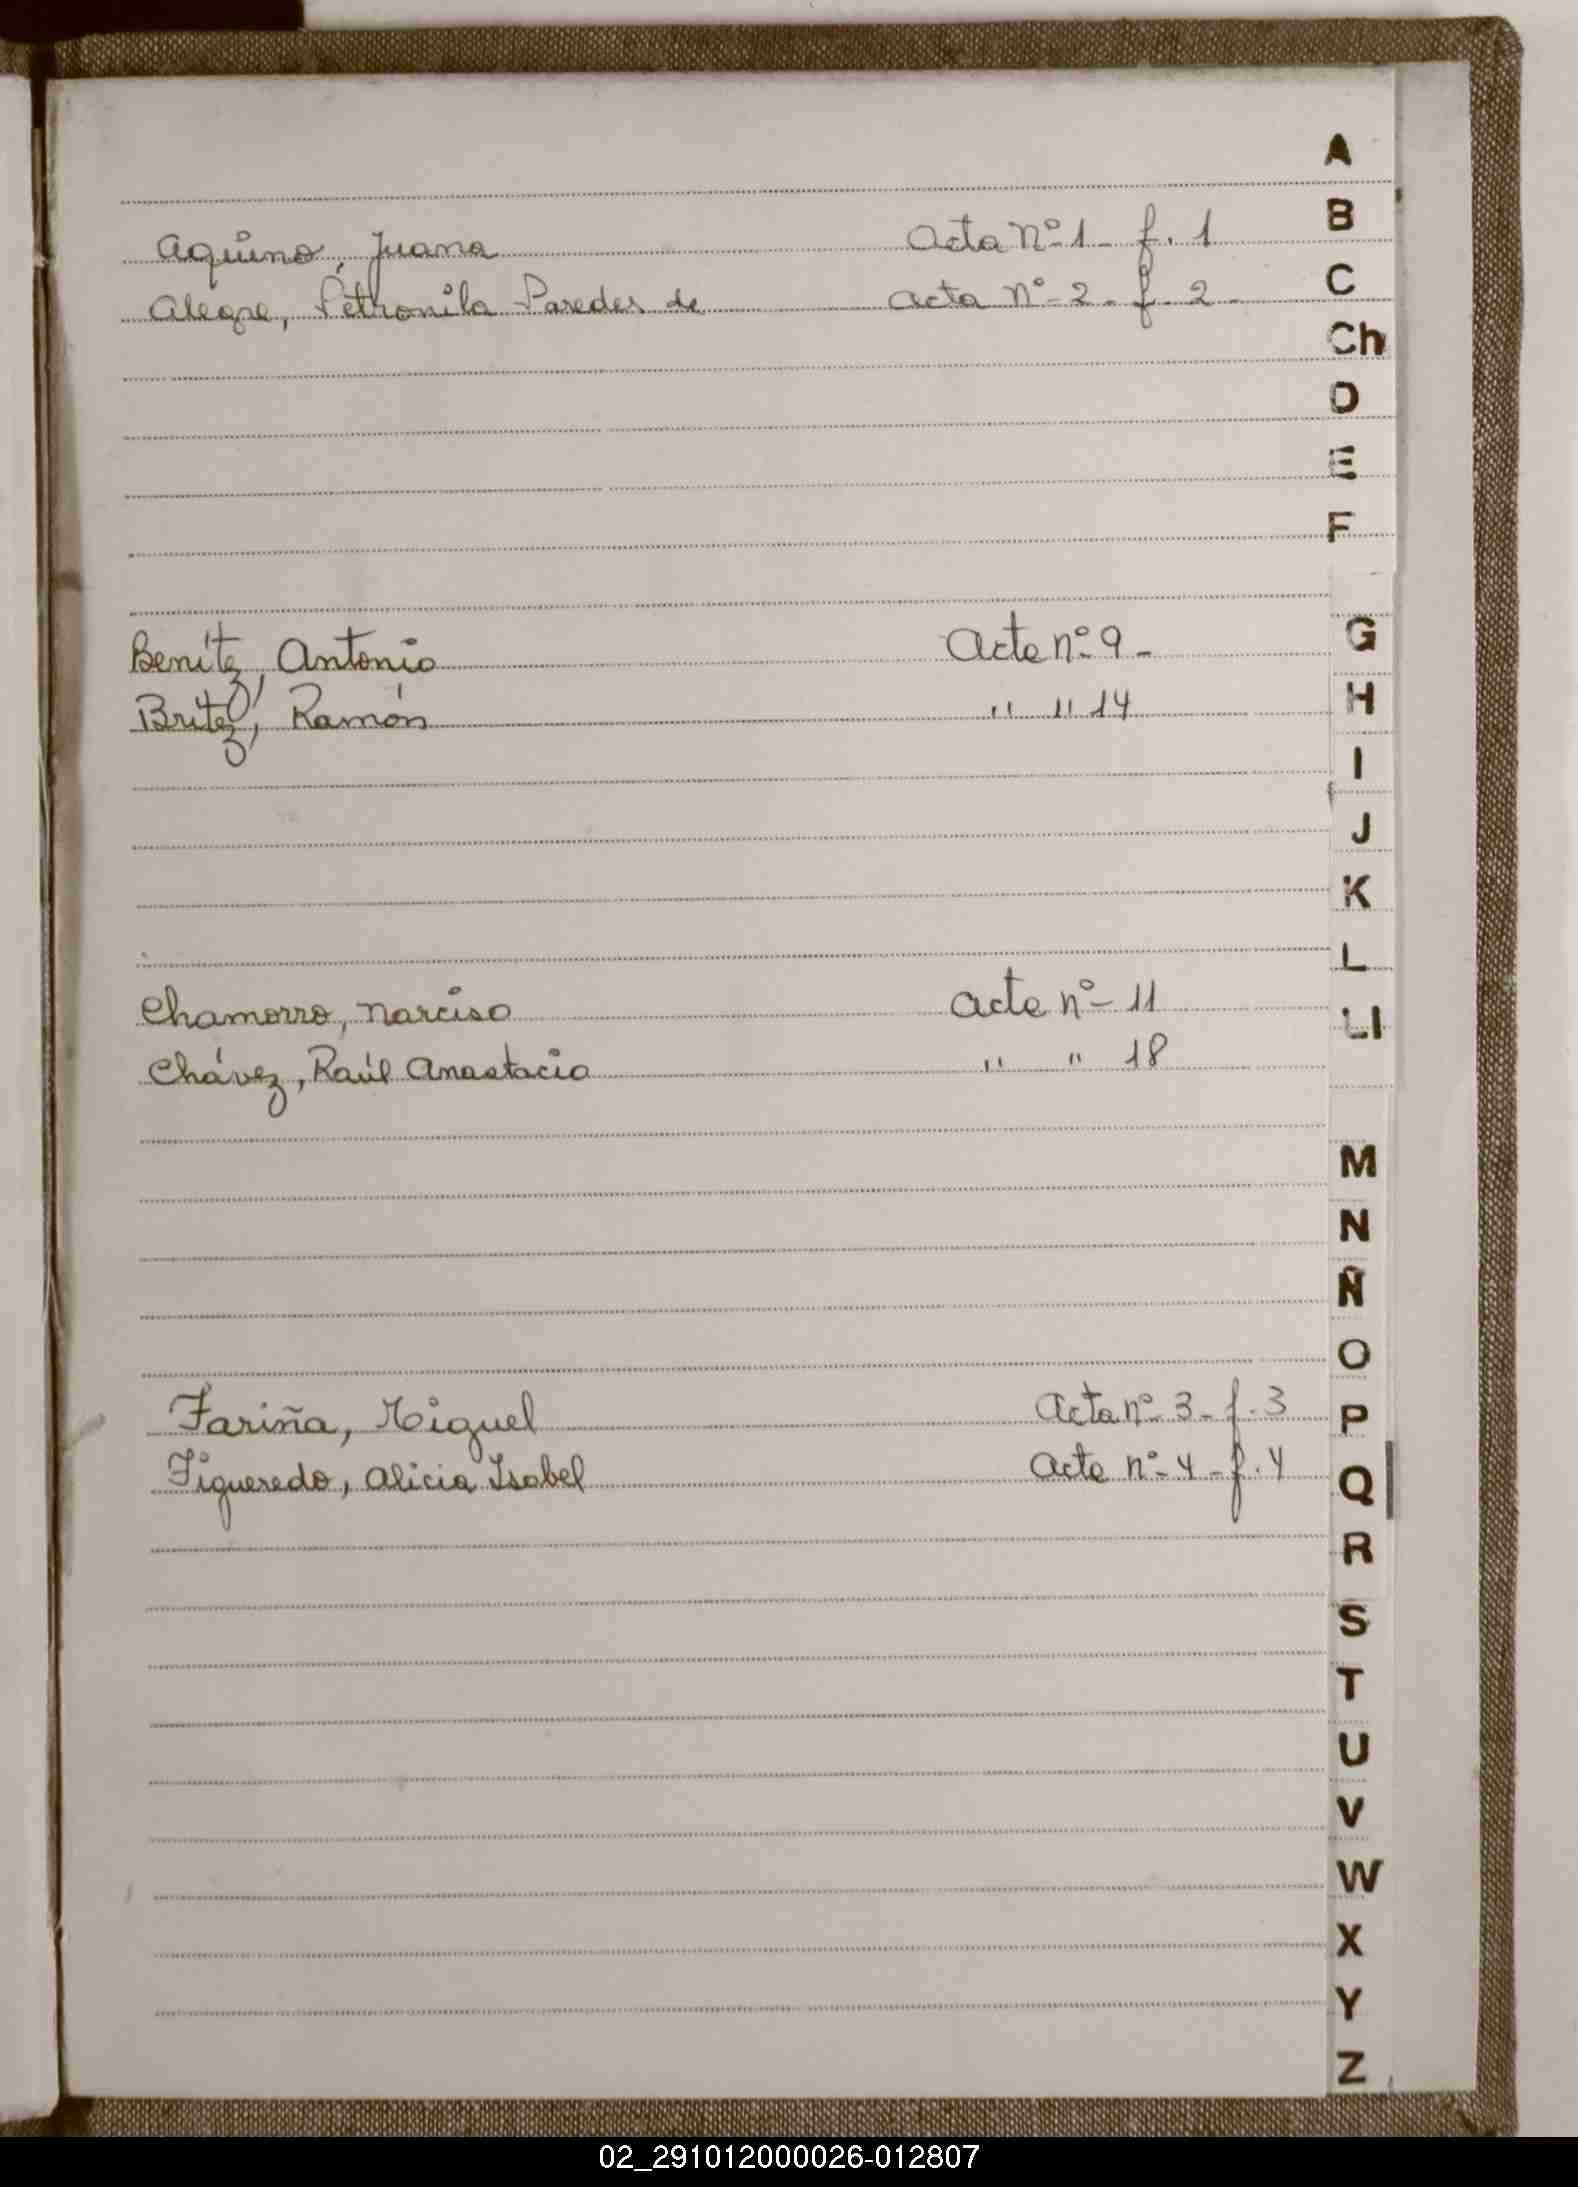 A
B
Aquino, Juana Acta Nº 1 - f. 1
C
Alegre, Petronila Paredes de Acta Nº - 2 - f. 2 -
Ch
D
E
F
G
Benítez, Antonio Acta nº 9 -
H
Britez, Ramón " " 14
I
J
K
L
Chamorro, Narciso Acta nº - 11
Ll
Chávez, Raúl Anastacio " " 18
M
N
Ñ
O
Fariña, Miguel Acta nº - 3 - f. 3
P
Figueredo, Alicia Isabel Acta nº - 4 - f. 4
Q
R
S
T
U
V
W
X
Y
Z
02_291012000026-012807